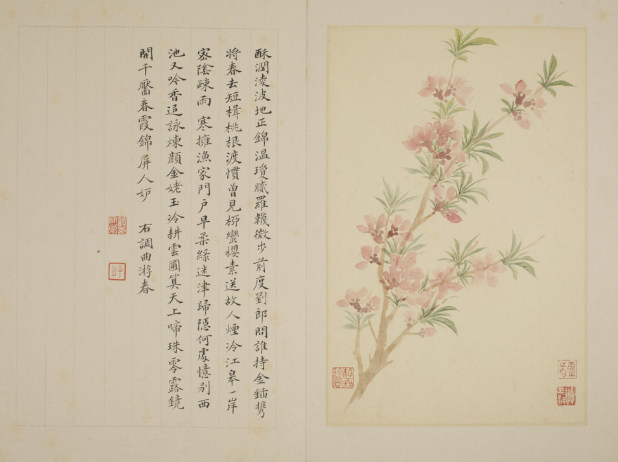 酥潤淩波地正錦溫瓊膩羅韈微步前度劉郎問誰持金鍤攜
將春去短楫桃根渡慣曾見柳蠻櫻素送故人煙冷江皋一岸
寒陰疎雨 寒擁漁家門戶早柔綠迷津歸隱何處憶別西
池又吟香追詠煉顏金姥玉冷耕雲圃算天上啼珠零露鏡
開千靨春霞錦屏人妒 右調曲游春